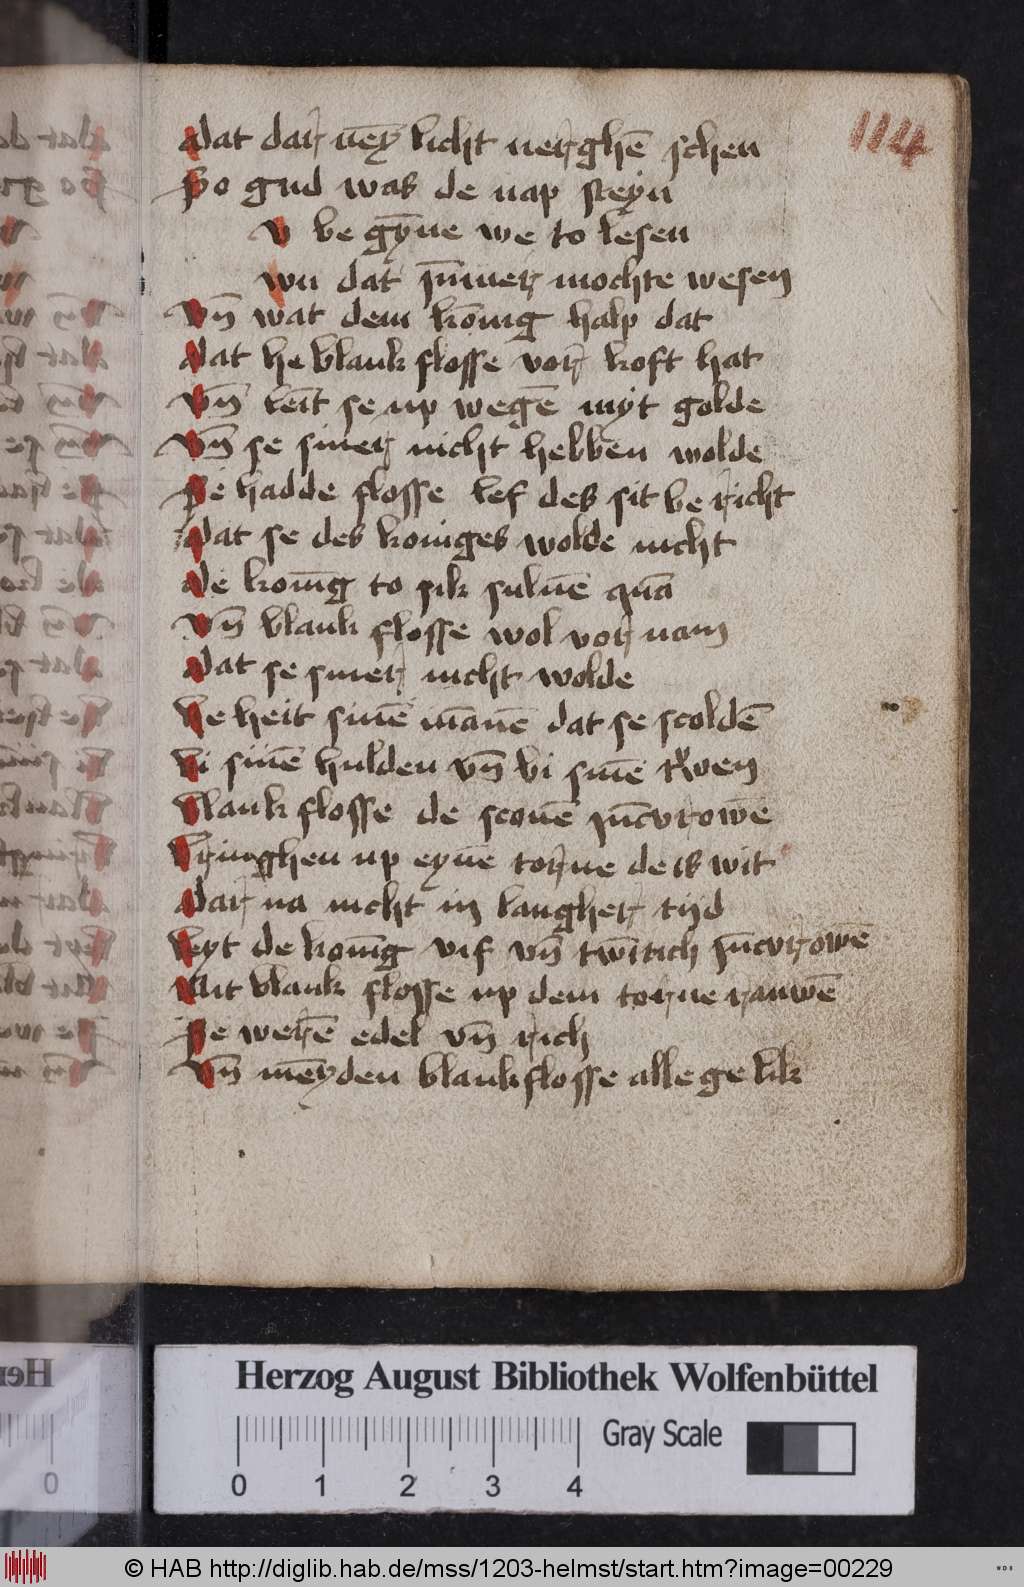 114
dat dar nēy licht nerghē schen
So gud was de nap steyn
v be gȳne we to lesen
wu dat ȳmmer mochte wesen
Vn̄ wat dem kōnig halp dat
dat he blank flosse vor koft hat
Vn̄ leīt se up wegē myt golde
Vn̄ se siner nicht hebben wolde
Se hadde flosse lef des sit be richt
dat se des koniges wolde nicht
de konīg to sik suluē quā
Vn̄ blank flosse wol vor nam
dat se siner nicht wolde
he heit sinē mānē dat se scoldē
bi sinē hulden vn̄ bi sinē truwen
blank flosse de sconē jūcvrowē
bringhen up eyne torne de is wit
dar na nicht in langher tijd
leyt de konīg vif vn̄ twītich jūcvrowē
Mit blank flosse up dem torne rauwē
Se werē edel vn̄ rich
Vn̄ mēyden blankflosse alle ge lik
Herzog August Bibliothek Wolfenbüttel
0 1 2 3 4
Gray Scale
© HAB http://diglib.hab.de/mss/1203-helmst/start.htm?image=00229